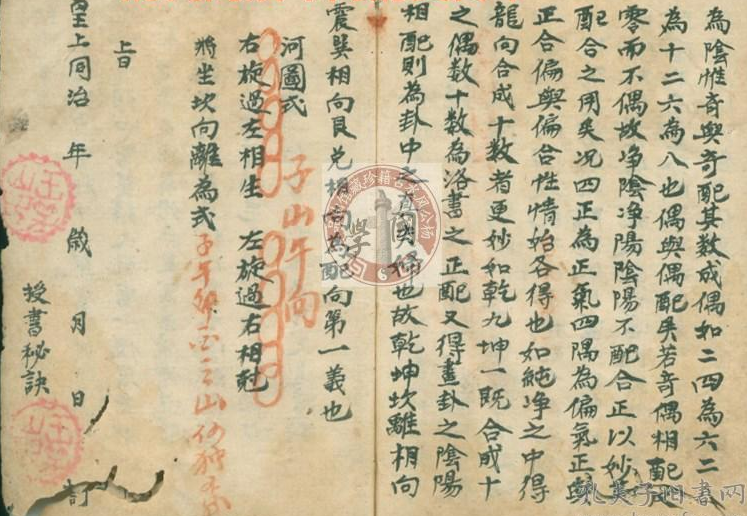 為陰惟奇與奇配其數成偶如二四為六二八
為十二六為八也偶與偶配矣若奇偶相配是
零而不偶故净陰净陽陰陽不配合正以妙
配合之用矣况四正為正氣四隅為偏氣正與
正合偏與偏合性情始各得也如純净之中得
龍向合成十數者更妙如乾九坤一既合成十
之偶數十數為洛書之正配又得畫卦之陰陽
相配則為卦中之也故乾坤坎離相向
震巽相向艮兌相向為配向第一義也
河圖式
子山午向
右旋過左相生 左旋過右相尅
將坐坎向離為式 子午
山
旨
皇上同治 年 歲 月 日 訂
授書秘訣
孔夫子旧书网